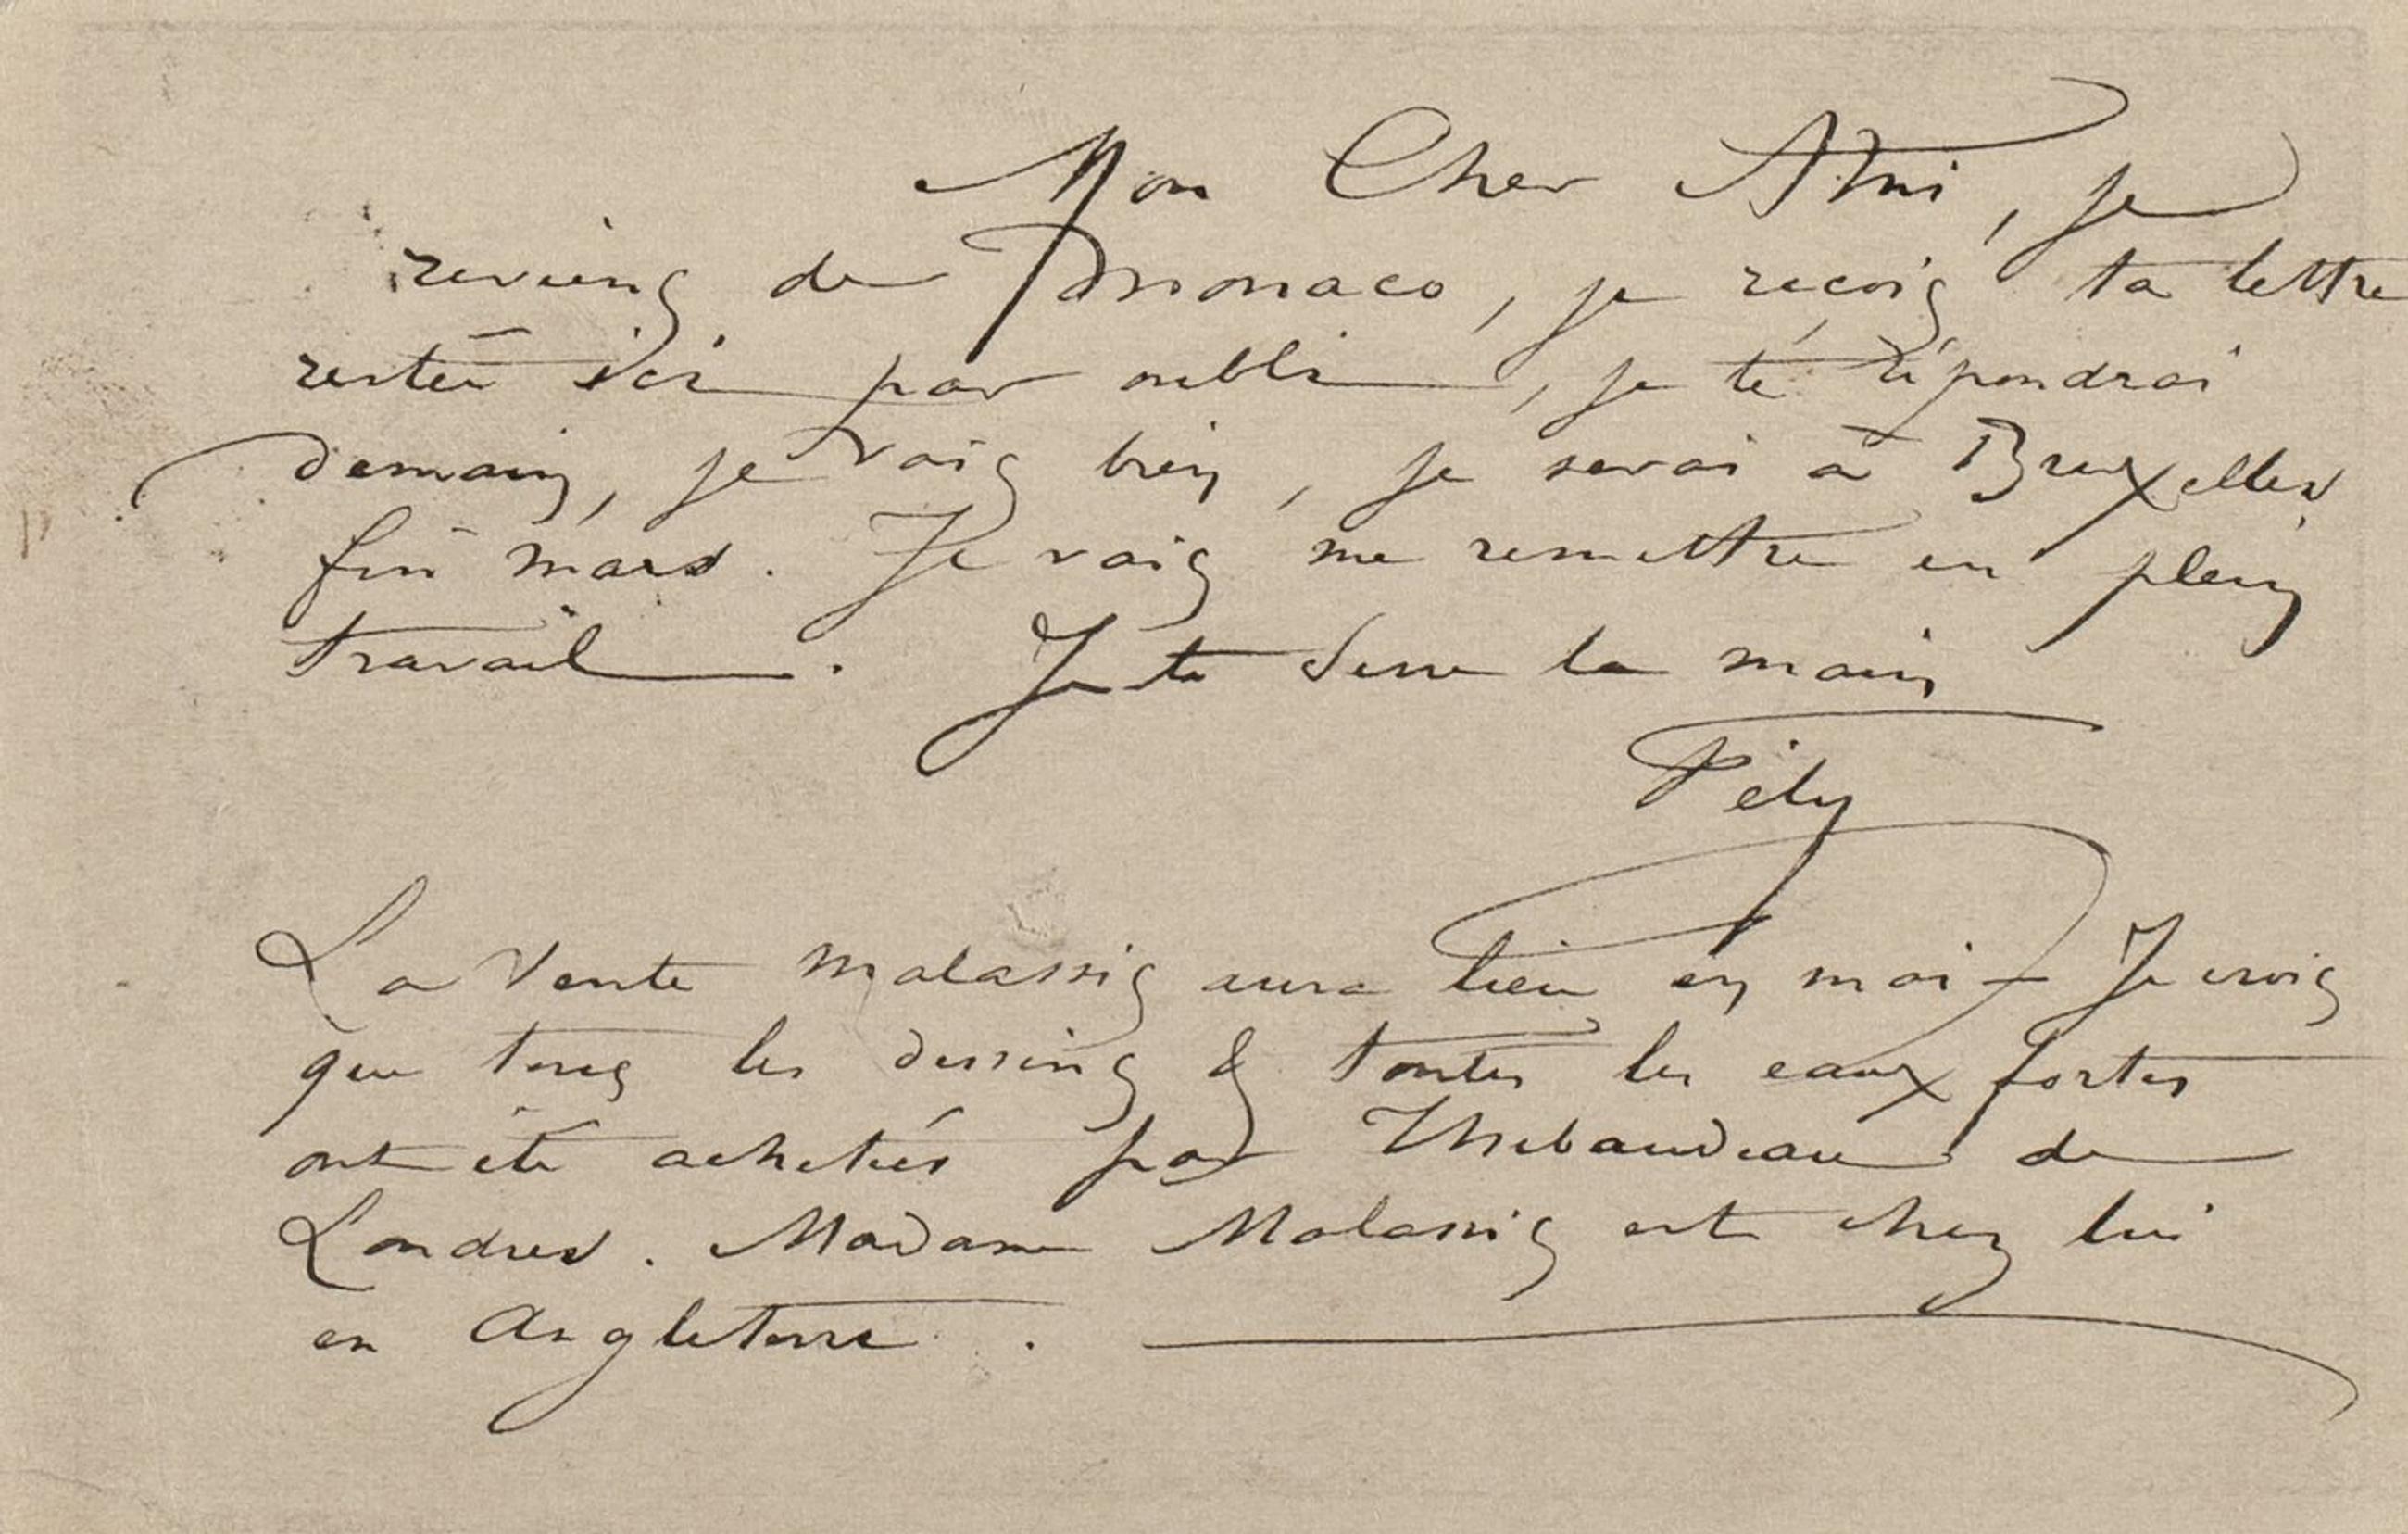 Mon Cher Ami, je
reviens de Monaco, je reçois ta lettre
restée ici par oubli, je te répondrai
demain, je vais bien, je serai à Bruxelles
fin mars. Je vais me remettre en plein
travail. Je te serre la main
Fély
La vente Malassis aura lieu en mai – Je crois
que tous les dessins & toutes les eaux fortes
ont été achetées par Thibaudeau de
Londres. Madame Malassis est chez lui
en Angleterre.